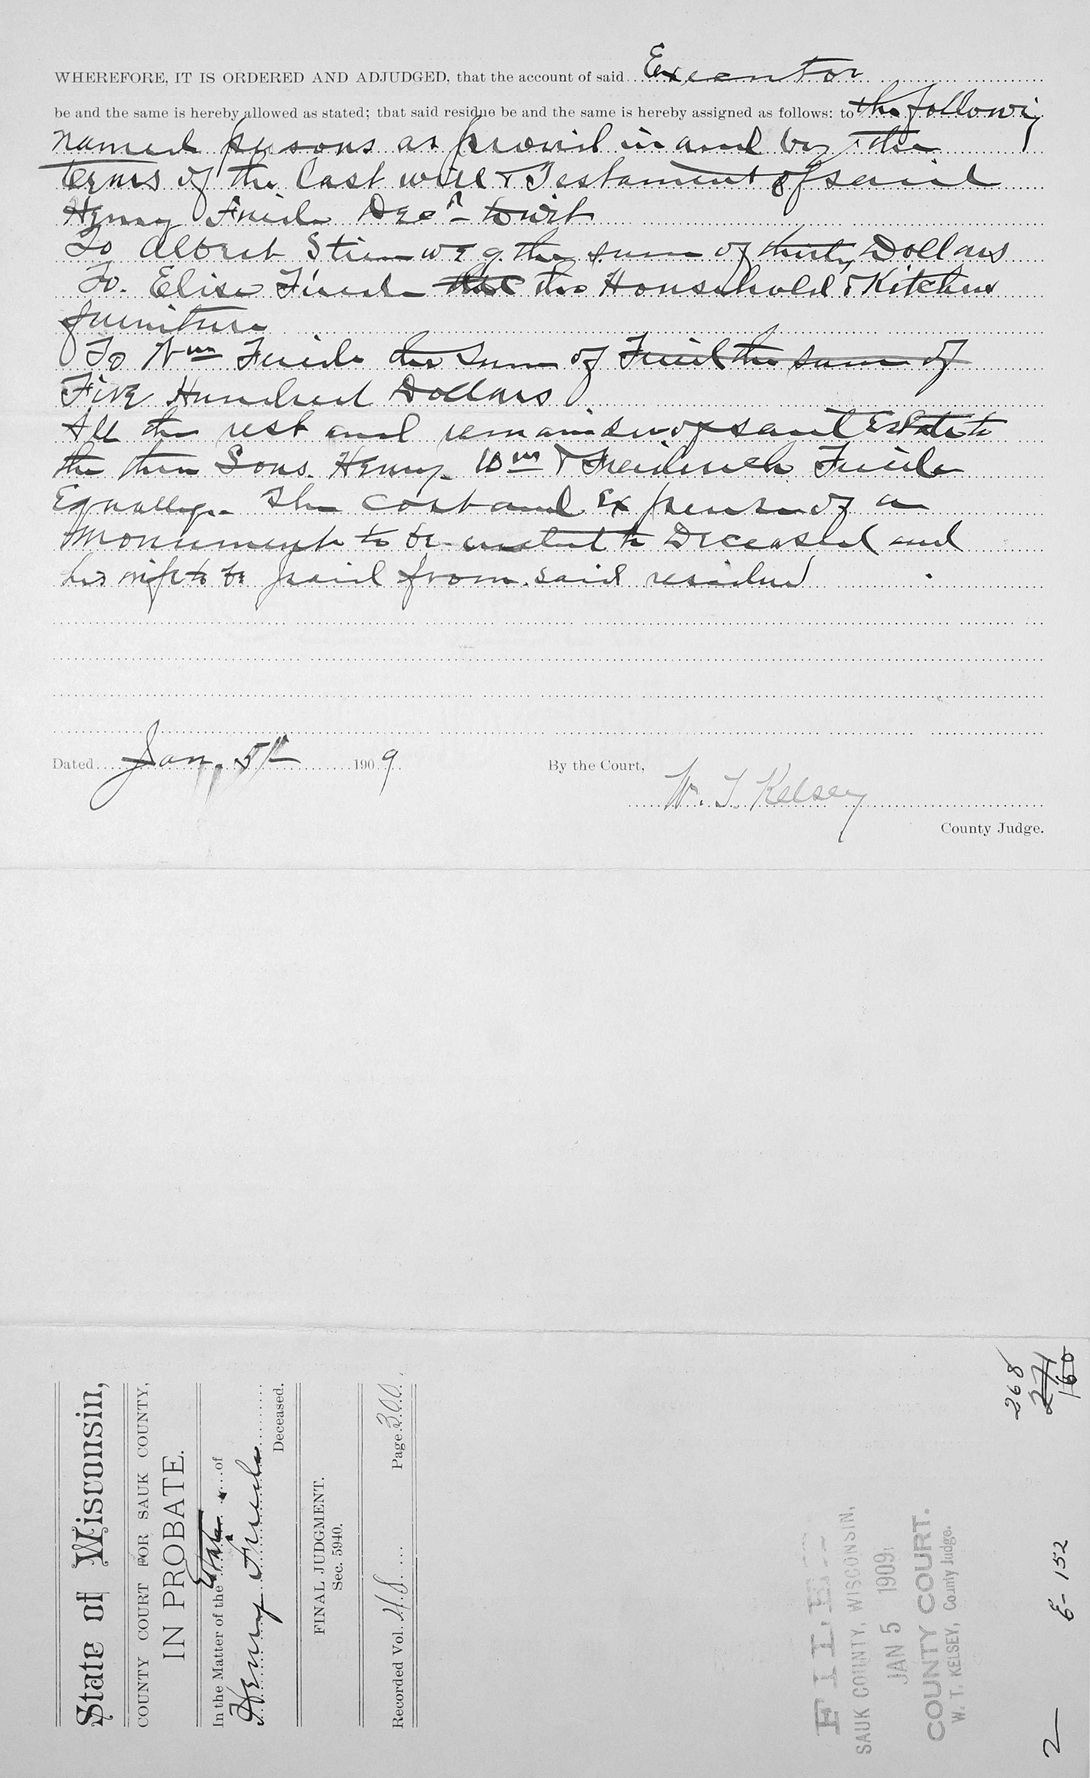 WHEREFORE, IT IS ORDERED AND ADJUDGED, that the account of said Executor
be and the same is hereby allowed as stated; that said residue be and the same is hereby assigned as follows: to the following
named persons as provid in and by the
terms of the Last will & Testament of said
Henry Dec'd towit
To Albert the sum of thirty Dollars
To. Elise the Household & Kitchen
furniture
To Wm the sum of the sum of
Five Hundred Dollars
All the rest and remainder of said Estate to
the Sons. Henry Wm &
Equally. The cost and Expense of a
Monument to be to Deceased and
his wife to be paid from said residue
Dated Jan. 5th 1909
By the Court,
W. T. Kelsey
County Judge.
State of Wisconsin,
COUNTY COURT FOR SAUK COUNTY,
IN PROBATE.
In the Matter of the Estate of
Henry
Deceased.
FINAL JUDGMENT.
Sec. 5940.
Recorded Vol. 48 Page 300
FILED
SAUK COUNTY, WISCONSIN,
JAN 5 1909
COUNTY COURT.
W. T. KELSEY, County Judge.
268
271
160
2 E-152